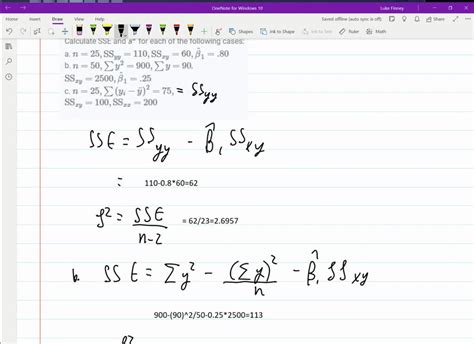 OneNote for Windows 10
Luke Finney
Home Insert Draw View Help
Saved offline (auto sync is off) Share
Shapes Ink to Shape Math
Calculate SSE and s² for each of the following cases:
a. n = 25, SS_yy = 110, SS_xy = 60, β̂₁ = .80
b. n = 50, ∑y² = 900, ∑y = 90,
SS_xy = 2500, β̂₁ = .25
c. n = 25, ∑(y_i − ȳ)² = 75, = SS_yy
SS_xy = 100, SS_xx = 200
SSE = SS_yy − β̂₁ SS_xy
= 110-0.8*60=62
s² = SSE / n-2 = 62/23=2.6957
b. SSE = ∑y² − (∑y)² / n − β̂₁ SS_xy
900-(90)^2/50-0.25*2500=113